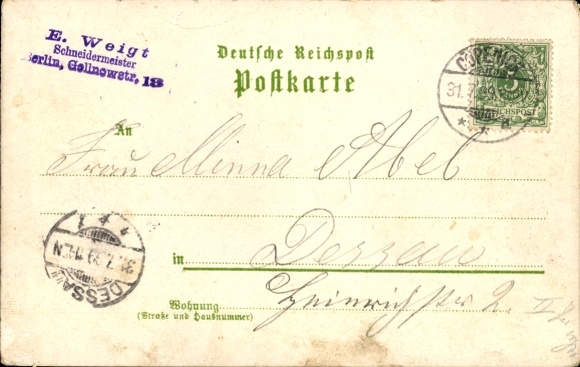 E. Weigt
Schneidermeister
Berlin, Gollnowstr. 13
Deutsche Reichspost
Postkarte
CÖPENICK
31.7.99
REICHSPOST
An
Frau Minna Abel
in Dessau
DESSAU
31.7.99
Wohnung Heinrichstr 2. II
(Straße und Hausnummer)